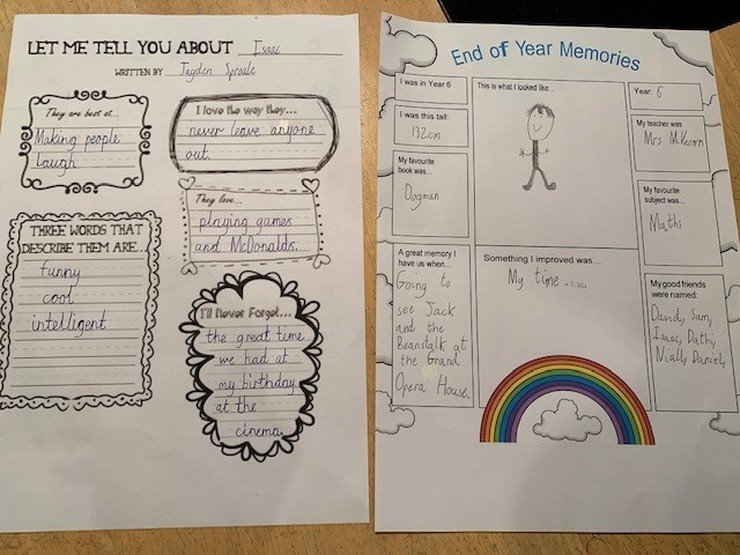 LET ME TELL YOU ABOUT Isaac
WRITTEN BY Jayden Sproule
They are best at...
Making people
laugh
I love the way they...
never leave anyone
out.
They love...
playing games
and McDonalds.
THREE WORDS THAT
DESCRIBE THEM ARE...
funny
cool
intelligent
I'll Never Forget...
the great time
we had at
my birthday
at the
cinema.
End of Year Memories
I was in Year 6
This is what I looked like...
Year: 6
I was this tall:
132cm
My teacher was
Mrs
My favourite
book was...
Dogman
My favourite
subject was...
Maths
A great memory I
have us when...
Going to
see Jack
and the
Beanstalk at
the Grand
Opera House.
Something I improved was...
My time
My good friends
were named:
David, Sam,
Isaac, Dathi,
Niall, Daniel,